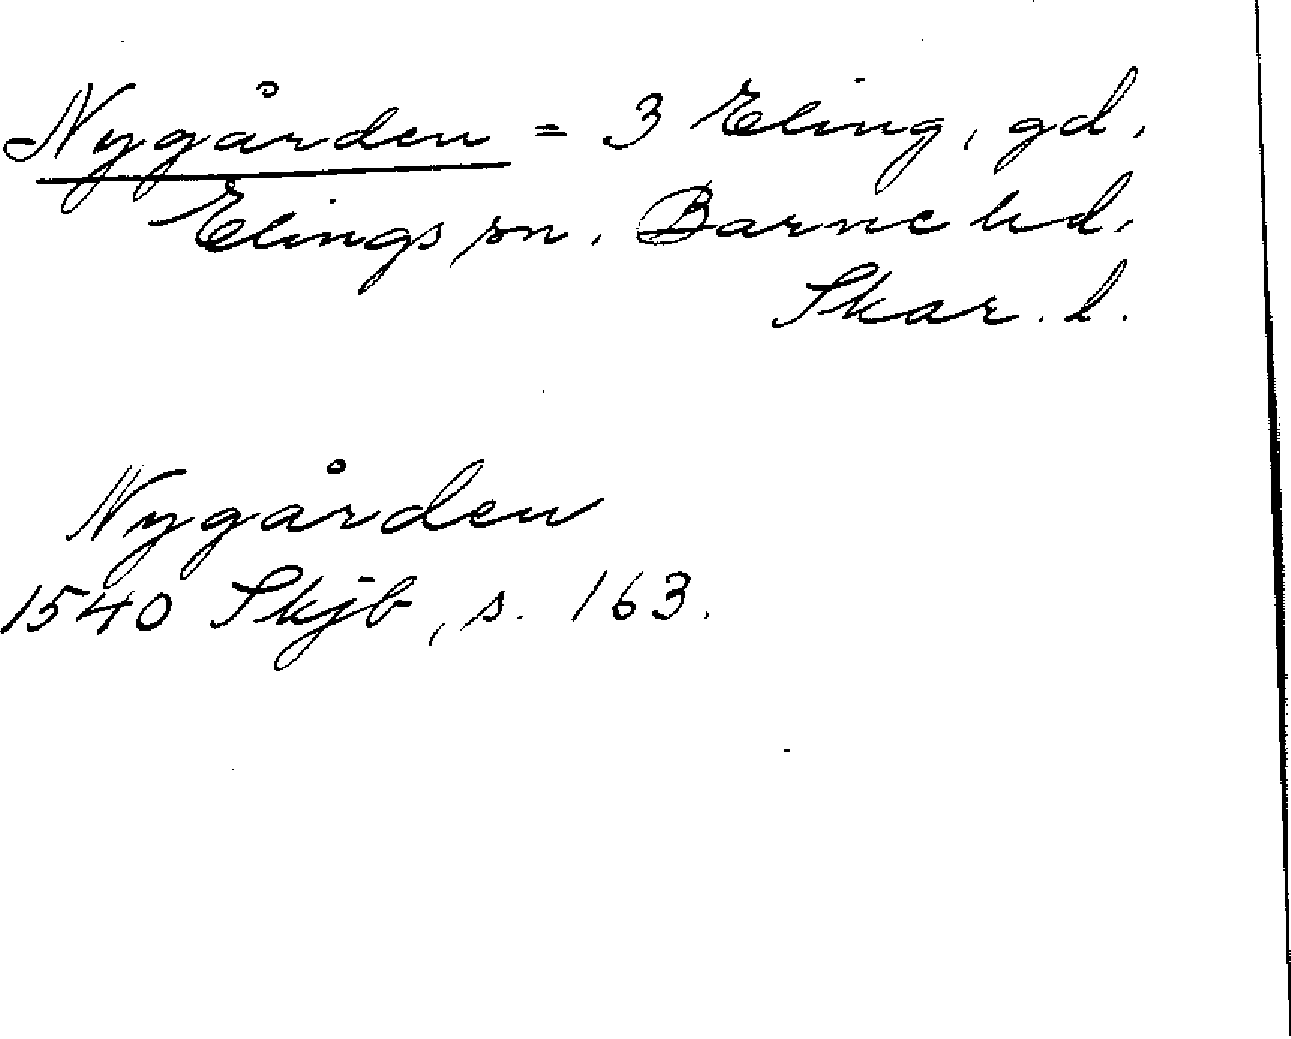 Nygården = 3 Eling, gd.
Elings sn. Barne hd.
Skar. l.
Nygården
1540 Skjb, s. 163.